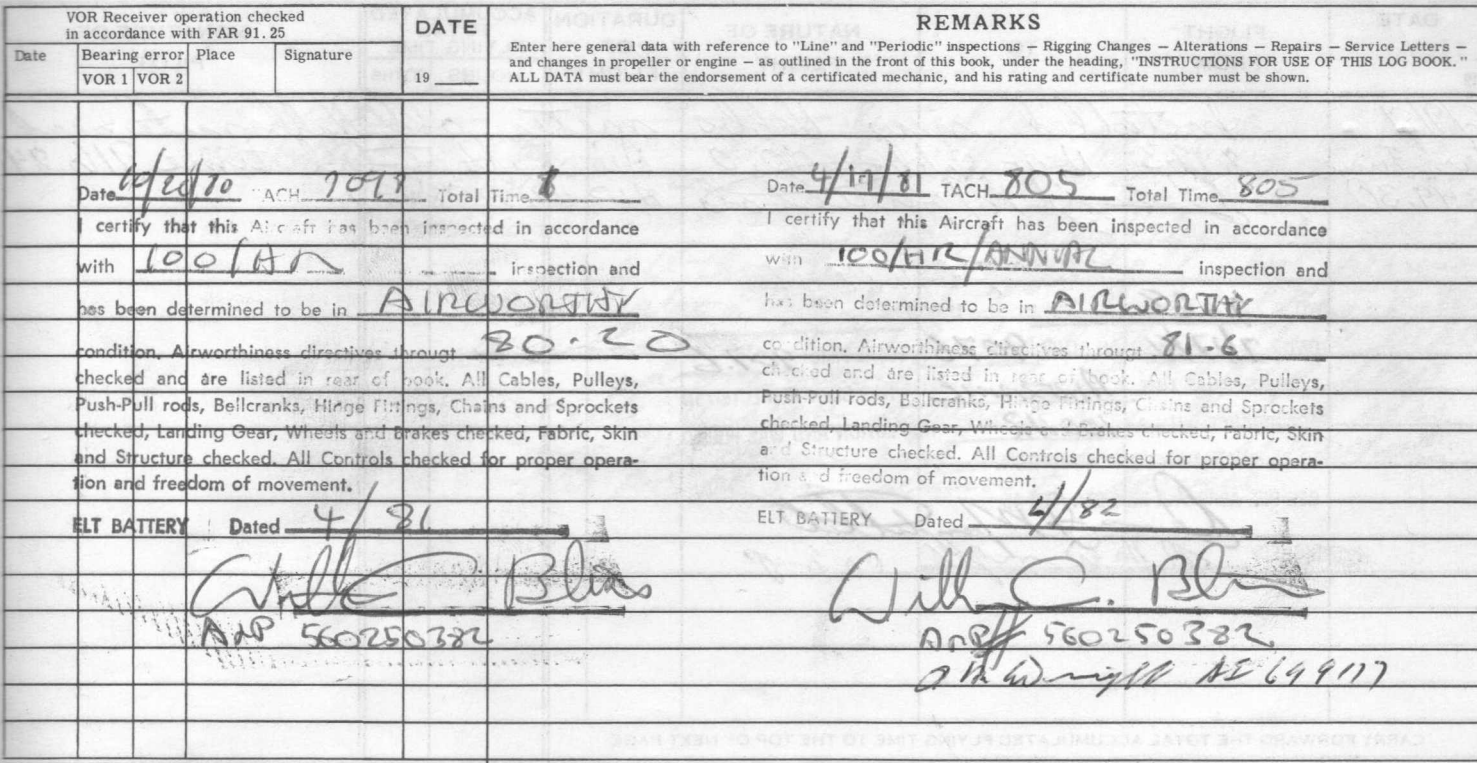 VOR Receiver operation checked
in accordance with FAR 91.25
Date Bearing error Place Signature
VOR 1 VOR 2
DATE
19
REMARKS
Enter here general data with reference to "Line" and "Periodic" inspections — Rigging Changes — Alterations — Repairs — Service Letters —
and changes in propeller or engine — as outlined in the front of this book, under the heading, "INSTRUCTIONS FOR USE OF THIS LOG BOOK."
ALL DATA must bear the endorsement of a certificated mechanic, and his rating and certificate number must be shown.
Date TACH Total Time
I certify that this Aircraft has been inspected in accordance
with 100/HR inspection and
has been determined to be in AIRWORTHY
condition. Airworthiness directives through 80-20
checked and are listed in rear of book. All Cables, Pulleys,
Push-Pull rods, Bellcranks, Hinge Fittings, Chains and Sprockets
checked, Landing Gear, Wheels and Brakes checked, Fabric, Skin
and Structure checked. All Controls checked for proper opera-
tion and freedom of movement.
ELT BATTERY Dated 4/81
AnP 560250382
Date 4/17/81 TACH 805 Total Time 805
I certify that this Aircraft has been inspected in accordance
with 100/HR/ANNUAL inspection and
has been determined to be in AIRWORTHY
condition. Airworthiness directives through 81-6
checked and are listed in rear of book. All Cables, Pulleys,
Push-Pull rods, Bellcranks, Hinge Fittings, Chains and Sprockets
checked, Landing Gear, Wheels and Brakes checked, Fabric, Skin
and Structure checked. All Controls checked for proper opera-
tion and freedom of movement.
ELT BATTERY Dated 4/82
AnP# 560250382
CARRY FORWARD THE TOTAL ACCUMULATED FLYING TIME TO THE TOP OF NEXT PAGE